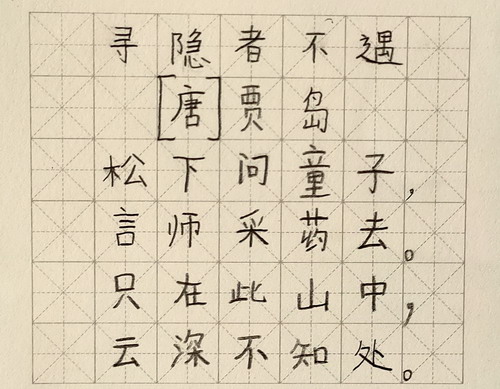 寻隐者不遇
[唐]贾岛
松下问童子,
言师采药去。
只在此山中,
云深不知处。